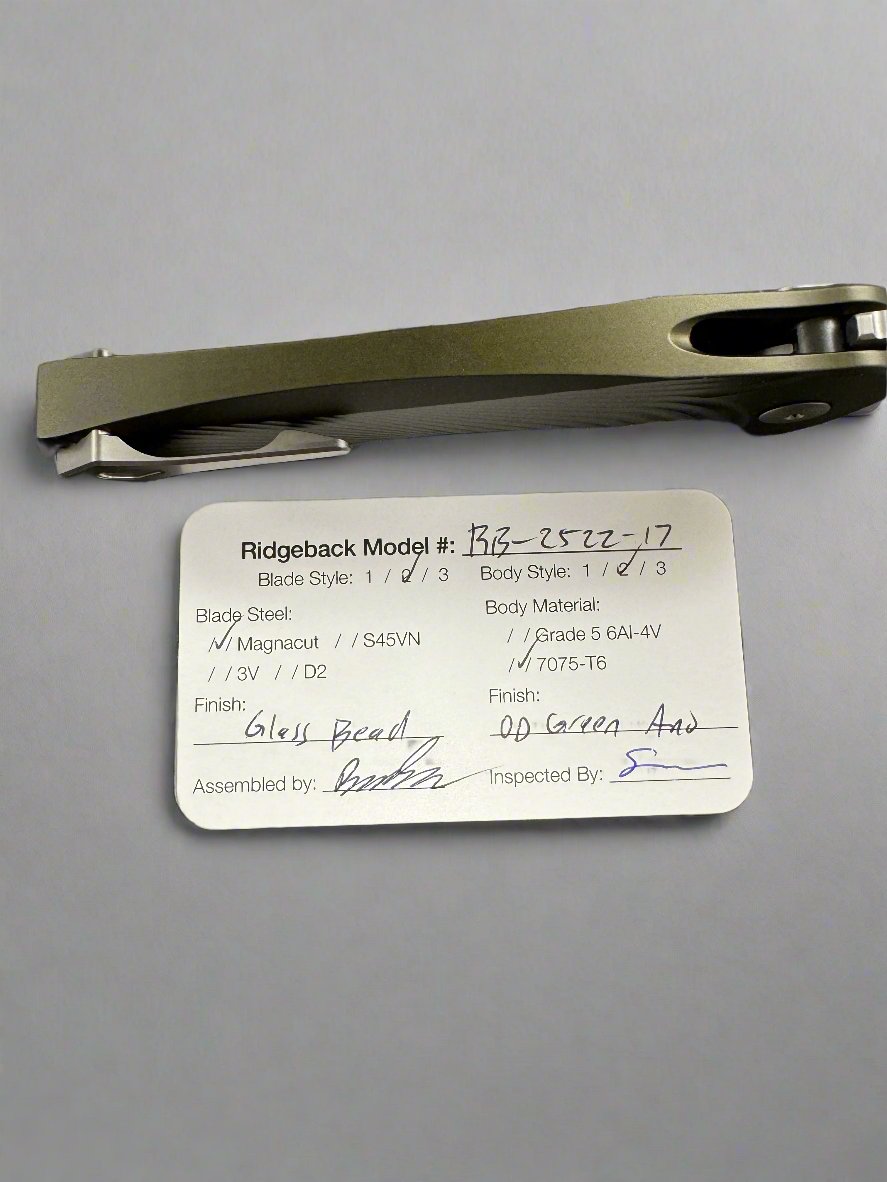 Ridgeback Model #: RB-2522-17
Blade Style: 1 / 2 / 3 Body Style: 1 / 2 / 3
Blade Steel: Body Material:
/ / Magnacut / / S45VN / / Grade 5 6Al-4V
/ / 3V / / D2 / / 7075-T6
Finish: Finish:
Glass Bead OD Green Ano
Assembled by: Inspected By: